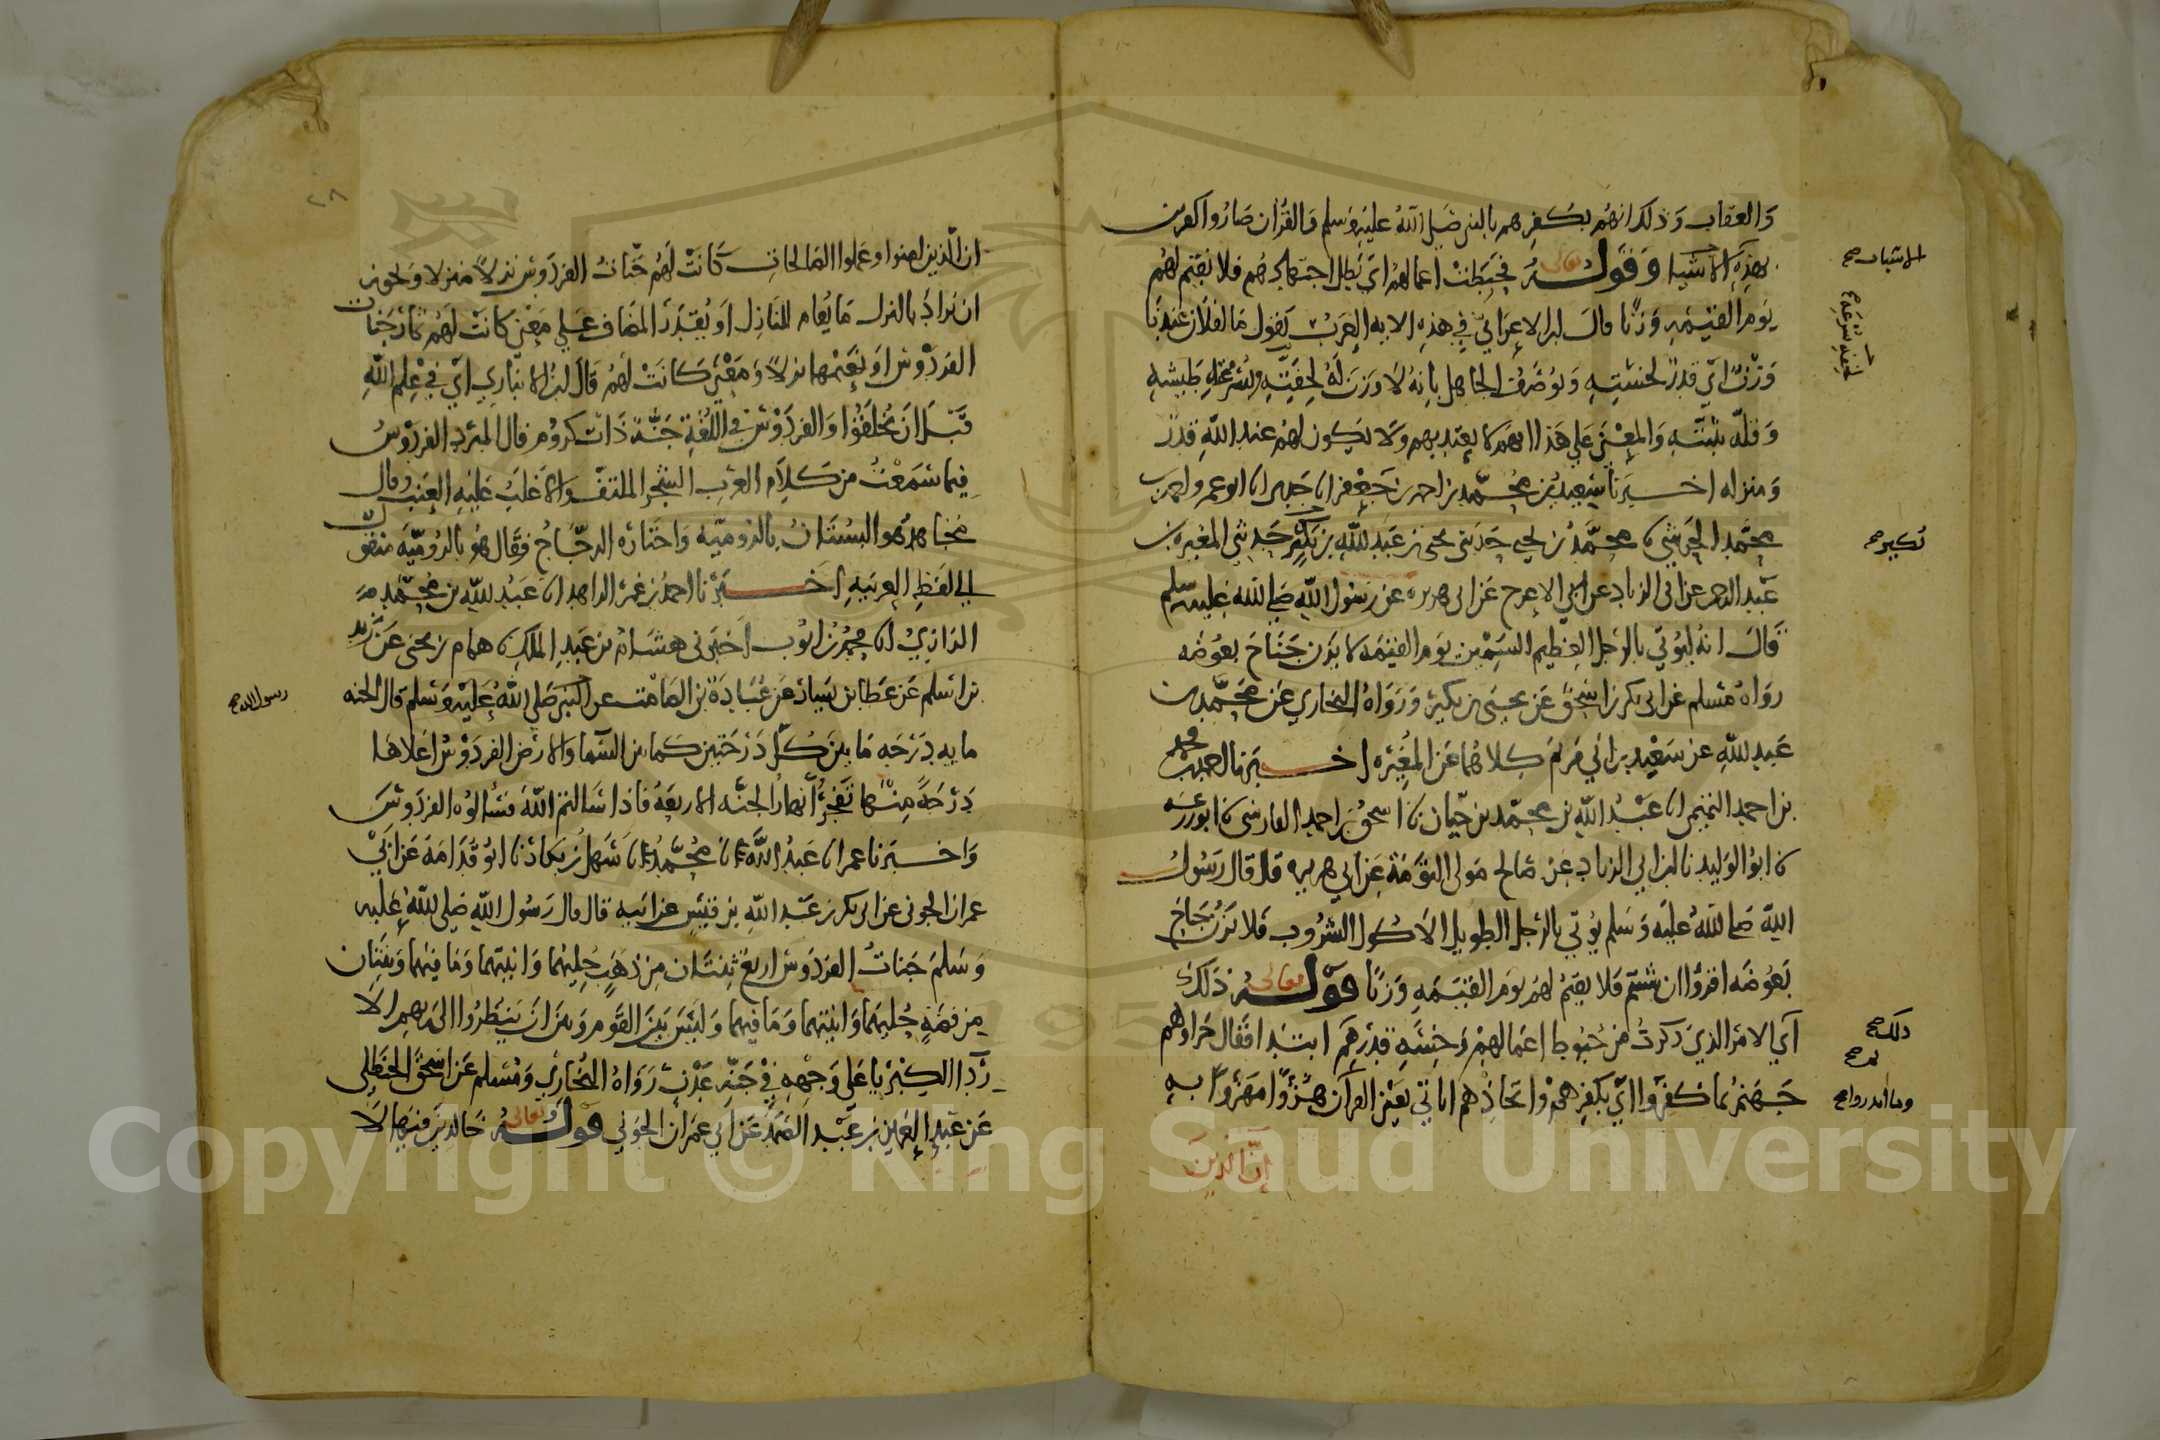 والعقاب وذلك انهم بكفرهم بالنبي صلى الله عليه وسلم والقران صاروا كافرين
بهذه الاشيا وقوله تعالى فحبطت اعمالهم اي بطل اجتهادهم فلا نقيم لهم
يوم القيمه وزنا قال ابن الاعرابي في هذه الايه العرب يقول ما لفلان عندنا
وزن اي قدر لخسته ويوصف الجاهل بانه لا وزن له لخفته بسرعة طيشه
وقلة تثبته والمعنى على هذا انهم لا يعتد بهم ولا يكون لهم عند الله قدر
ومنزله اخبرنا سعيد بن محمد بن احمد بن جعفر انا جدي انا ابو عمرو احمد بن
محمد الحرشي محمد بن يحيى حدثني يحيى بن عبد الله بن بكير حدثني المغيرة بن
عبد الرحمن عن ابي الزناد عن الاعرج عن ابي هريره عن رسول الله صلى الله عليه وسلم
قال انه ليوتي بالرجل العظيم السمين يوم القيمه لا يزن جناح بعوضه
رواه مسلم عن ابي بكر بن اسحق عن يحيى بن بكير ورواه البخاري عن محمد بن
عبد الله عن سعيد بن ابي مريم كلاهما عن المغيره اخبرنا احمد بن محمد
بن احمد التميمي انا عبد الله بن محمد بن حيان نا اسحق بن احمد الفارسي نا ابو زرعه
نا ابو الوليد نا ابن ابي الزناد عن صالح مولى التومة عن ابي هريره قال قال رسول
الله صلى الله عليه وسلم يوتي بالرجل الطويل الاكول الشروب فلا يزن جناح
بعوضه اقروا ان شئتم فلا نقيم لهم يوم القيمه وزنا قوله تعالى ذلك
اي الامر الذي ذكرت من حبوط اعمالهم وخسة قدرهم ابتدا فقال جزاوهم
جهنم بما كفروا اي بكفرهم واتخاذهم اياتي يعني القران هزؤا مهزوا به
ان الذين
الاشيا صح
لخفته بسرعة
بكير صح
ذلك صح
ثم صح
٢٨
ان الذين امنوا وعملوا الصالحات كانت لهم جنات الفردوس نزلا منزلا ويجوز
ان يراد بالنزل ما يقام للنازل او يقدر المضاف على معنى كانت لهم ثمار جنات
الفردوس او نعيمها نزلا ومعنى كانت لهم قال ابن الانباري اي في علم الله
قبل ان تخلقوا والفردوس في اللغة جنة ذات كروم قال المبرد الفردوس
فيما سمعت من كلام العرب الشجر الملتف والاغلب عليه العنب وقال
مجاهد هو البستان بالروميه واختاره الزجاج فقال هو بالروميه منقول
الى لفظ العربيه اخبرنا احمد بن عمر الزاهد انا عبد الله بن محمد بن
الرازي انا محمد بن ايوب اخبرني هشام بن عبد الملك همام بن يحيى عن زيد
بن اسلم عن عطا بن يسار عن عبادة بن الصامت عن النبي صلى الله عليه وسلم قال الجنه
مايه درجه ما بين كل درجتين كما بين السما والارض الفردوس اعلاها
درجة منها تفجر انهار الجنه الاربعة فاذا سالتم الله فسالوه الفردوس
واخبرنا عمر انا عبد الله انا محمد انا سهل بن بكار نا ابو قدامة عن ابي
عمران الجوني عن ابي بكر بن عبد الله بن قيس عن ابيه قال قال رسول الله صلى الله عليه
وسلم جنات الفردوس اربع ثنتان من ذهب حليتهما وانيتهما وما فيهما وثنتان
من فضة حليتهما وانيتهما وما فيهما وليس بين القوم وبين ان ينظروا الى ربهم الا
ردا الكبريا على وجهه في جنة عدن رواه البخاري ومسلم عن اسحق الحنظلي
عن عبد العزيز بن عبد الصمد عن ابي عمران الجوني قوله تعالى خالدين فيها لا
رسول الله صح
Copyright © King Saud University
1957